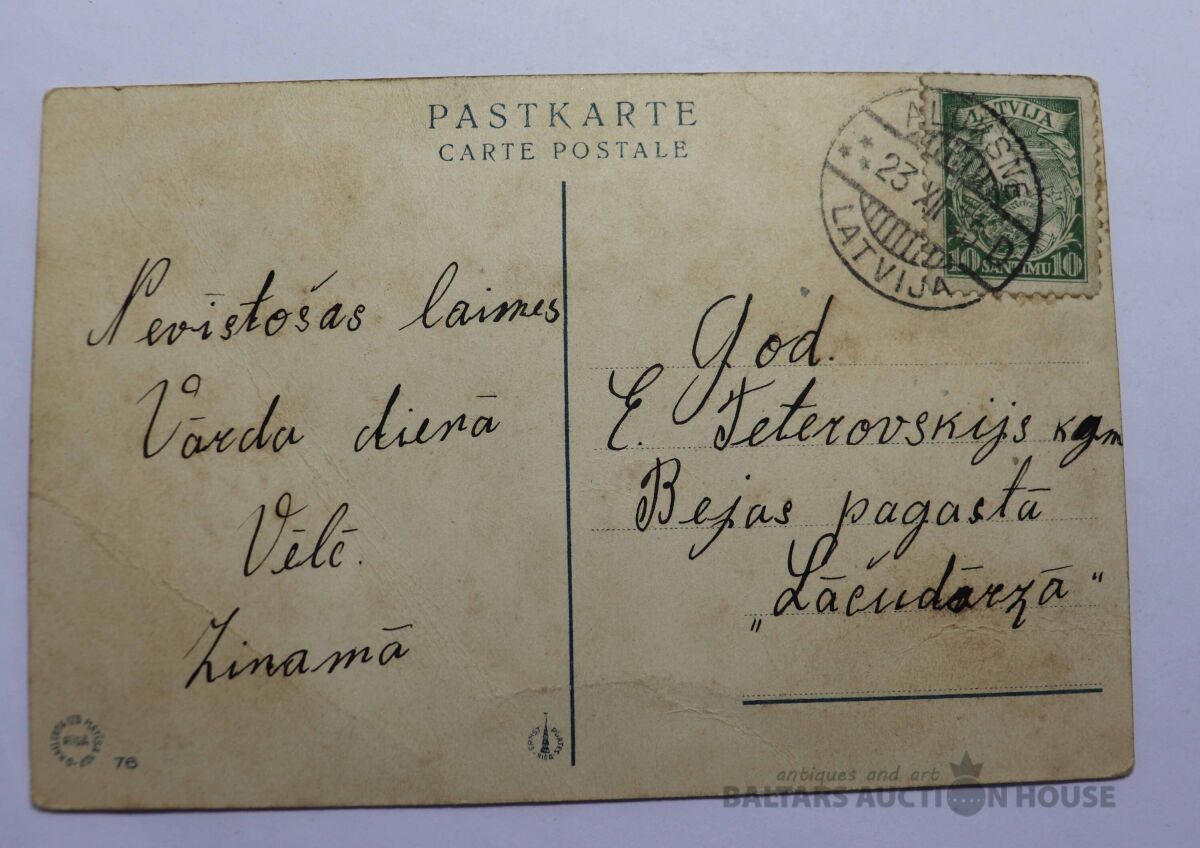 PASTKARTE
CARTE POSTALE
LATVIJA
10 SANTIMU 10
23 XII
LATVIJA
Nevīstošas laimes
Vārda dienā
Vēlē.
Zinamā
God.
E. Teterovskijs kgm
Bejas pagastā
„Lāčudārzā"
76
ERNST PLATES RIGA
antiques and art
BALTARS AUCTION HOUSE